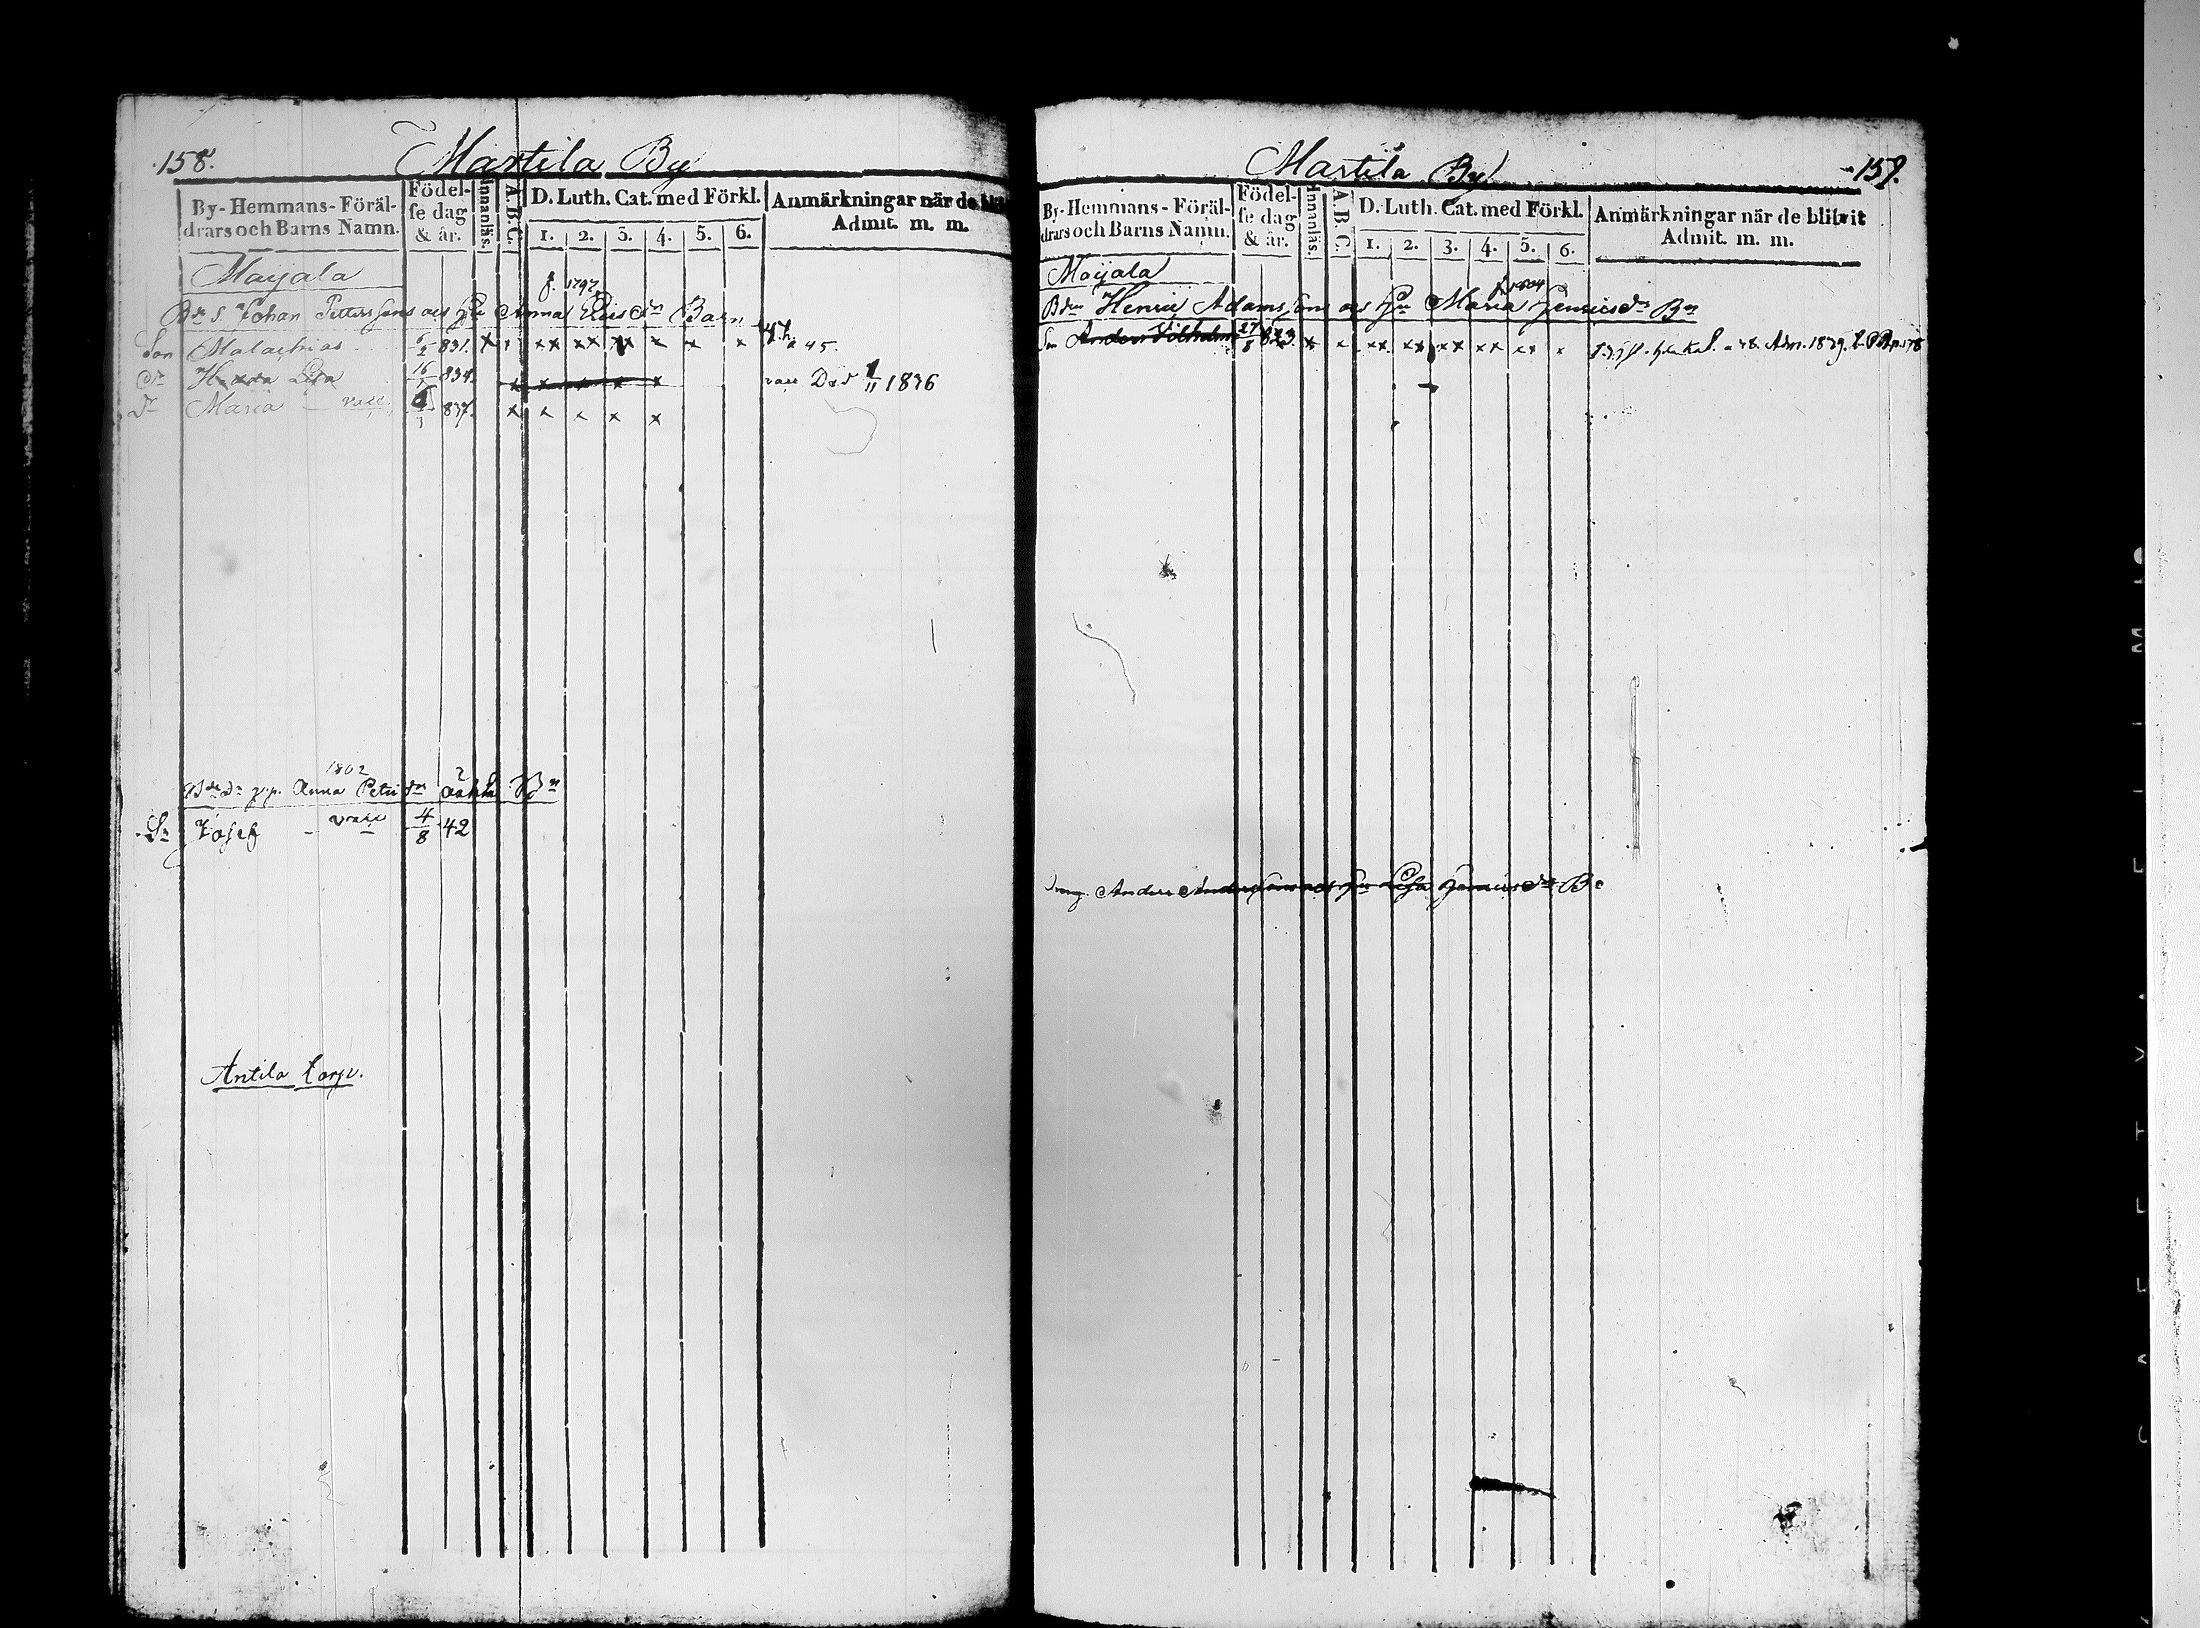 158.
Martila By
By-Hemmans-Föräl-
drars och Barns Namn.
Födel-
se dag
& år.
Innanläs.
A. B. C.
D. Luth. Cat. med Förkl.
1. 2. 3. 4. 5. 6.
Anmärkningar när de bli
Admit. m. m.
Maijala
f. 1797
Bdn S. Johan Pettersson och Hu Anna Barn
Son Malachias 831. x x xx xx xx x x x 45.
Dr Lisa 16 834. x x x x x vacc Död 1/11 1836
Dr Maria vacc. 837. x x x x x
1802
Anna Petri dr Bn
Sn Josef vacc 4/8 42
Antila torp.
Martila By
159.
By-Hemmans-Föräl-
drars och Barns Namn.
Födel-
se dag
& år.
Innanläs.
A. B. C.
D. Luth. Cat. med Förkl.
1. 2. 3. 4. 5. 6.
Anmärkningar när de blifvit
Admit. m. m.
Maijala
f. 1804
Bdn Henric Adamssons och Hu Maria Henricsdr Bn
Sn Anders Vilhelm 27/8 823 x x xx xx xx xx xx x Adm. 1839.
Anders Anderssons och Hu Lisa Henricsdr Bn